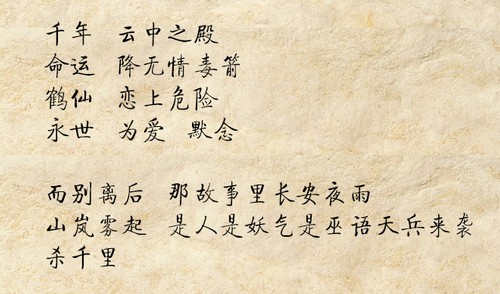 千年 云中之殿
命运 降无情毒箭
鹤仙 恋上危险
永世 为爱 默念
而别离后 那故事里长安夜雨
山岚雾起 是人是妖气是巫语天兵来袭
杀千里